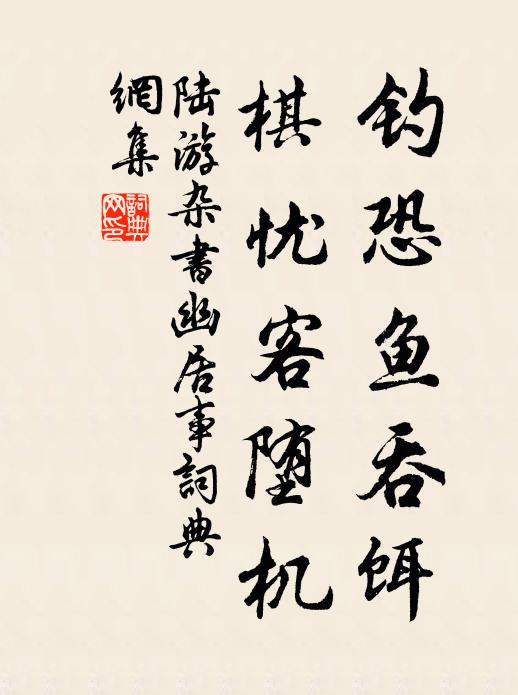 钓恐鱼吞饵
棋忧客堕机
陆游杂书幽居事詞典
網集
詞典网印